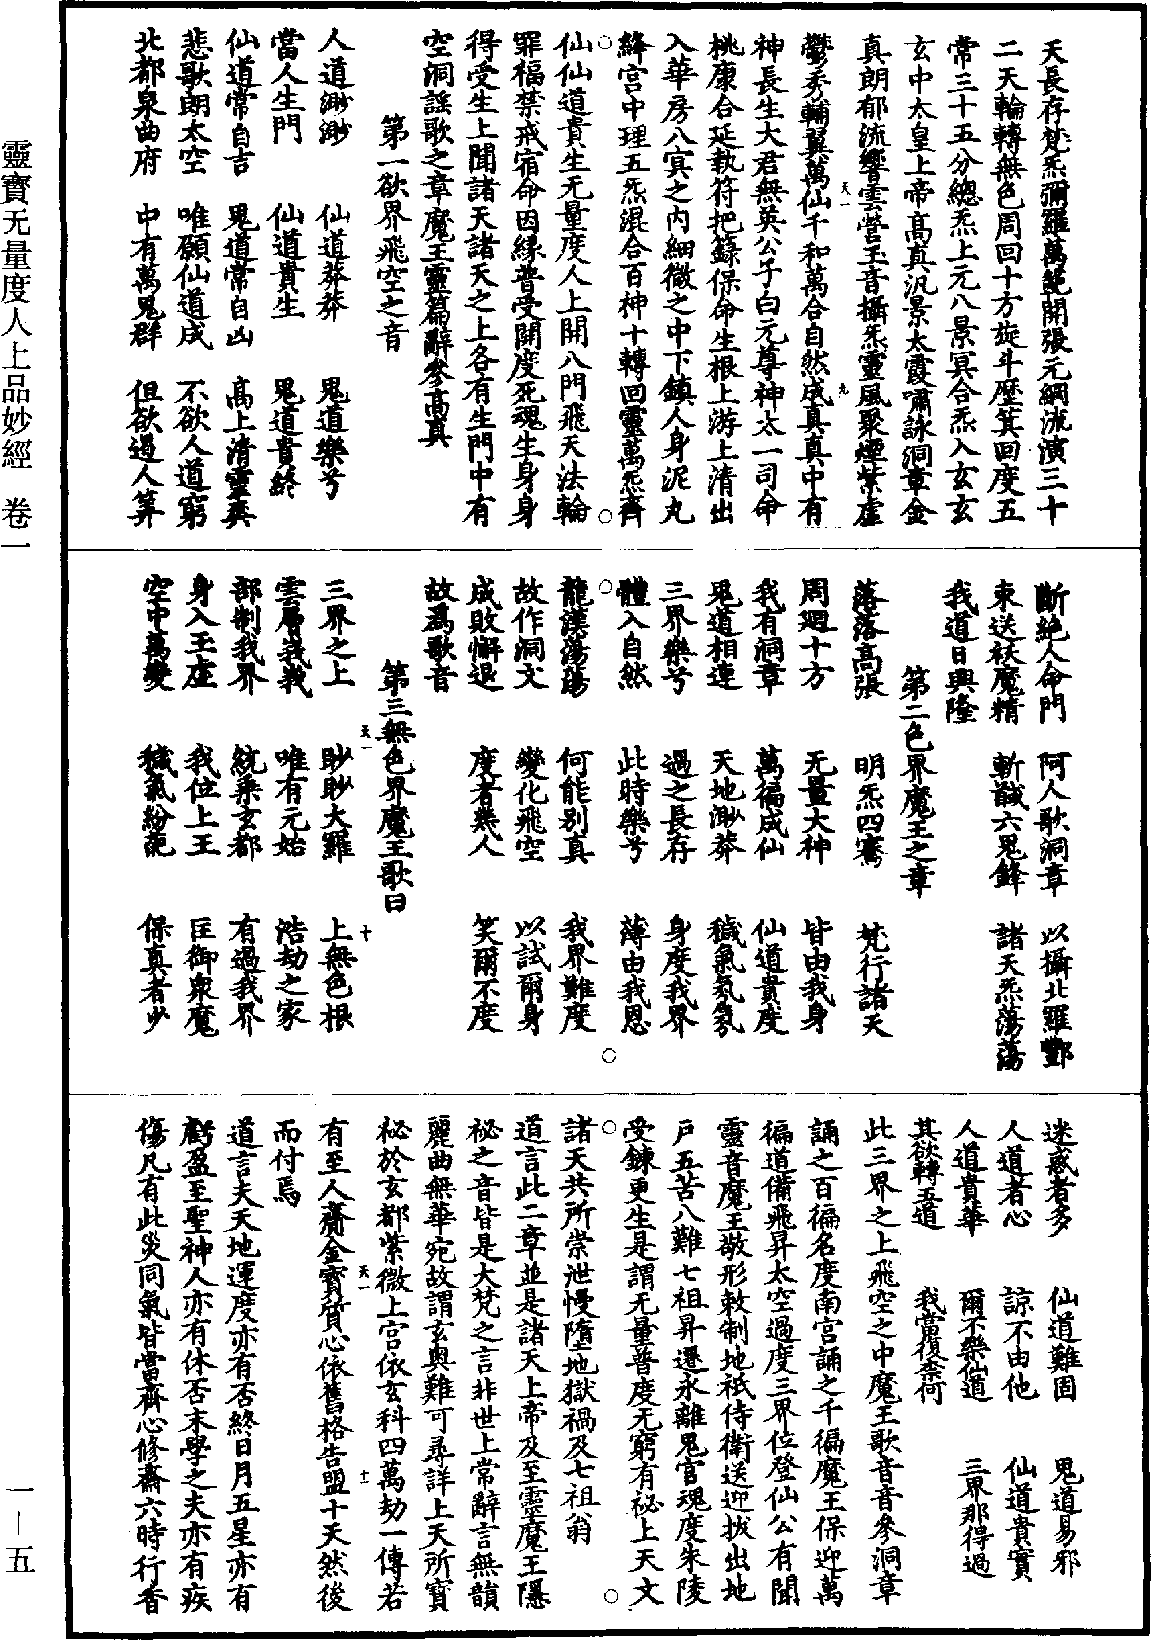 天長存梵炁彌羅萬範開張元綱流演三十
二天輪轉無色周回十方旋斗歷箕回度五
常三十五分總炁上元八景冥合炁入玄玄
玄中太皇上帝高真汎景太霞嘯詠洞章金
真朗郁流響雲營玉音攝炁靈風聚煙紫虛
天一　九
鬱秀輔翼萬仙千和萬合自然成真真中有
神長生大君無英公子白元尊神太一司命
桃康合延執符把籙保命生根上游上清出
入華房八冥之內細微之中下鎮人身泥丸
絳宮中理五炁混合百神十轉回靈萬炁齊
仙仙道貴生无量度人上開八門飛天法輪
罪福禁戒宿命因緣普受開度死魂生身身
得受生上聞諸天諸天之上各有生門中有
空洞謠歌之章魔王靈篇辭參高真
第一欲界飛空之音
人道渺渺　仙道莽莽　鬼道樂兮
當人生門　仙道貴生　鬼道貴終
仙道常自吉　鬼道常自凶　高上清靈爽
悲歌朗太空　唯願仙道成　不欲人道窮
北都泉曲府　中有萬鬼群　但欲遏人筭
斷絕人命門　阿人歌洞章　以攝北羅酆
束送祅魔精　斬馘六鬼鋒　諸天炁蕩蕩
我道日興隆
第二色界魔王之章
落落高張　明炁四騫　梵行諸天
周迴十方　无量大神　皆由我身
我有洞章　萬徧成仙　仙道貴度
鬼道相連　天地渺莽　穢氣氛氛
三界樂兮　過之長存　身度我界
體入自然　此時樂兮　薄由我恩
龍漢蕩蕩　何能別真　我界難度
故作洞文　變化飛空　以試爾身
成敗懈退　度者幾人　笑爾不度
故為歌音
第三無色界魔王歌曰
天一　十
三界之上　眇眇大羅　上無色根
雲層峩峩　唯有元始　浩劫之家
部制我界　統乘玄都　有過我界
身入玉虛　我位上王　匡御眾魔
空中萬變　穢氣紛葩　保真者少
迷惑者多　仙道難固　鬼道易邪
人道者心　諒不由他　仙道貴實
人道貴華　爾不樂仙道　三界那得過
其欲轉五道　我當復柰何
此三界之上飛空之中魔王歌音音參洞章
誦之百徧名度南宮誦之千徧魔王保迎萬
徧道備飛昇太空過度三界位登仙公有聞
靈音魔王敬形敕制地祇侍衛送迎拔出地
戶五苦八難七祖昇遷永離鬼官魂度朱陵
受鍊更生是謂无量普度无窮有祕上天文
諸天共所崇泄慢墮地獄禍及七祖翁
道言此二章並是諸天上帝及至靈魔王隱
祕之音皆是大梵之言非世上常辭言無韻
麗曲無華宛故謂玄奧難可尋詳上天所寶
祕於玄都紫微上宮依玄科四萬劫一傳若
天一　十一
有至人齎金寶質心依舊格告盟十天然後
而付焉
道言夫天地運度亦有否終日月五星亦有
虧盈至聖神人亦有休否末學之夫亦有疾
傷凡有此災同氣皆當齊心修齋六時行香
靈寶无量度人上品妙經　卷一
一—五